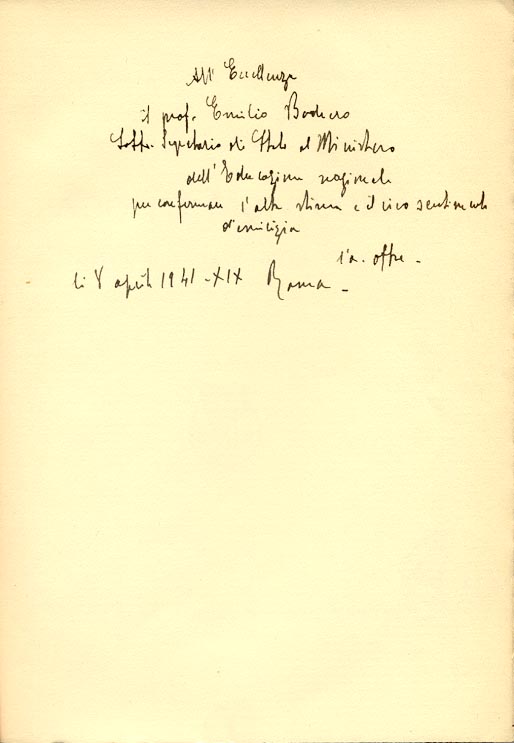 All' Eccellenza
il prof. Emilio Bodrero
Sotto Segretario di Stato al Ministero
dell'Educazione nazionale
per confermare l'alta stima e il vivo sentimento
d'amicizia
l'a. offre -
li 8 aprile 1941 - XIX Roma -